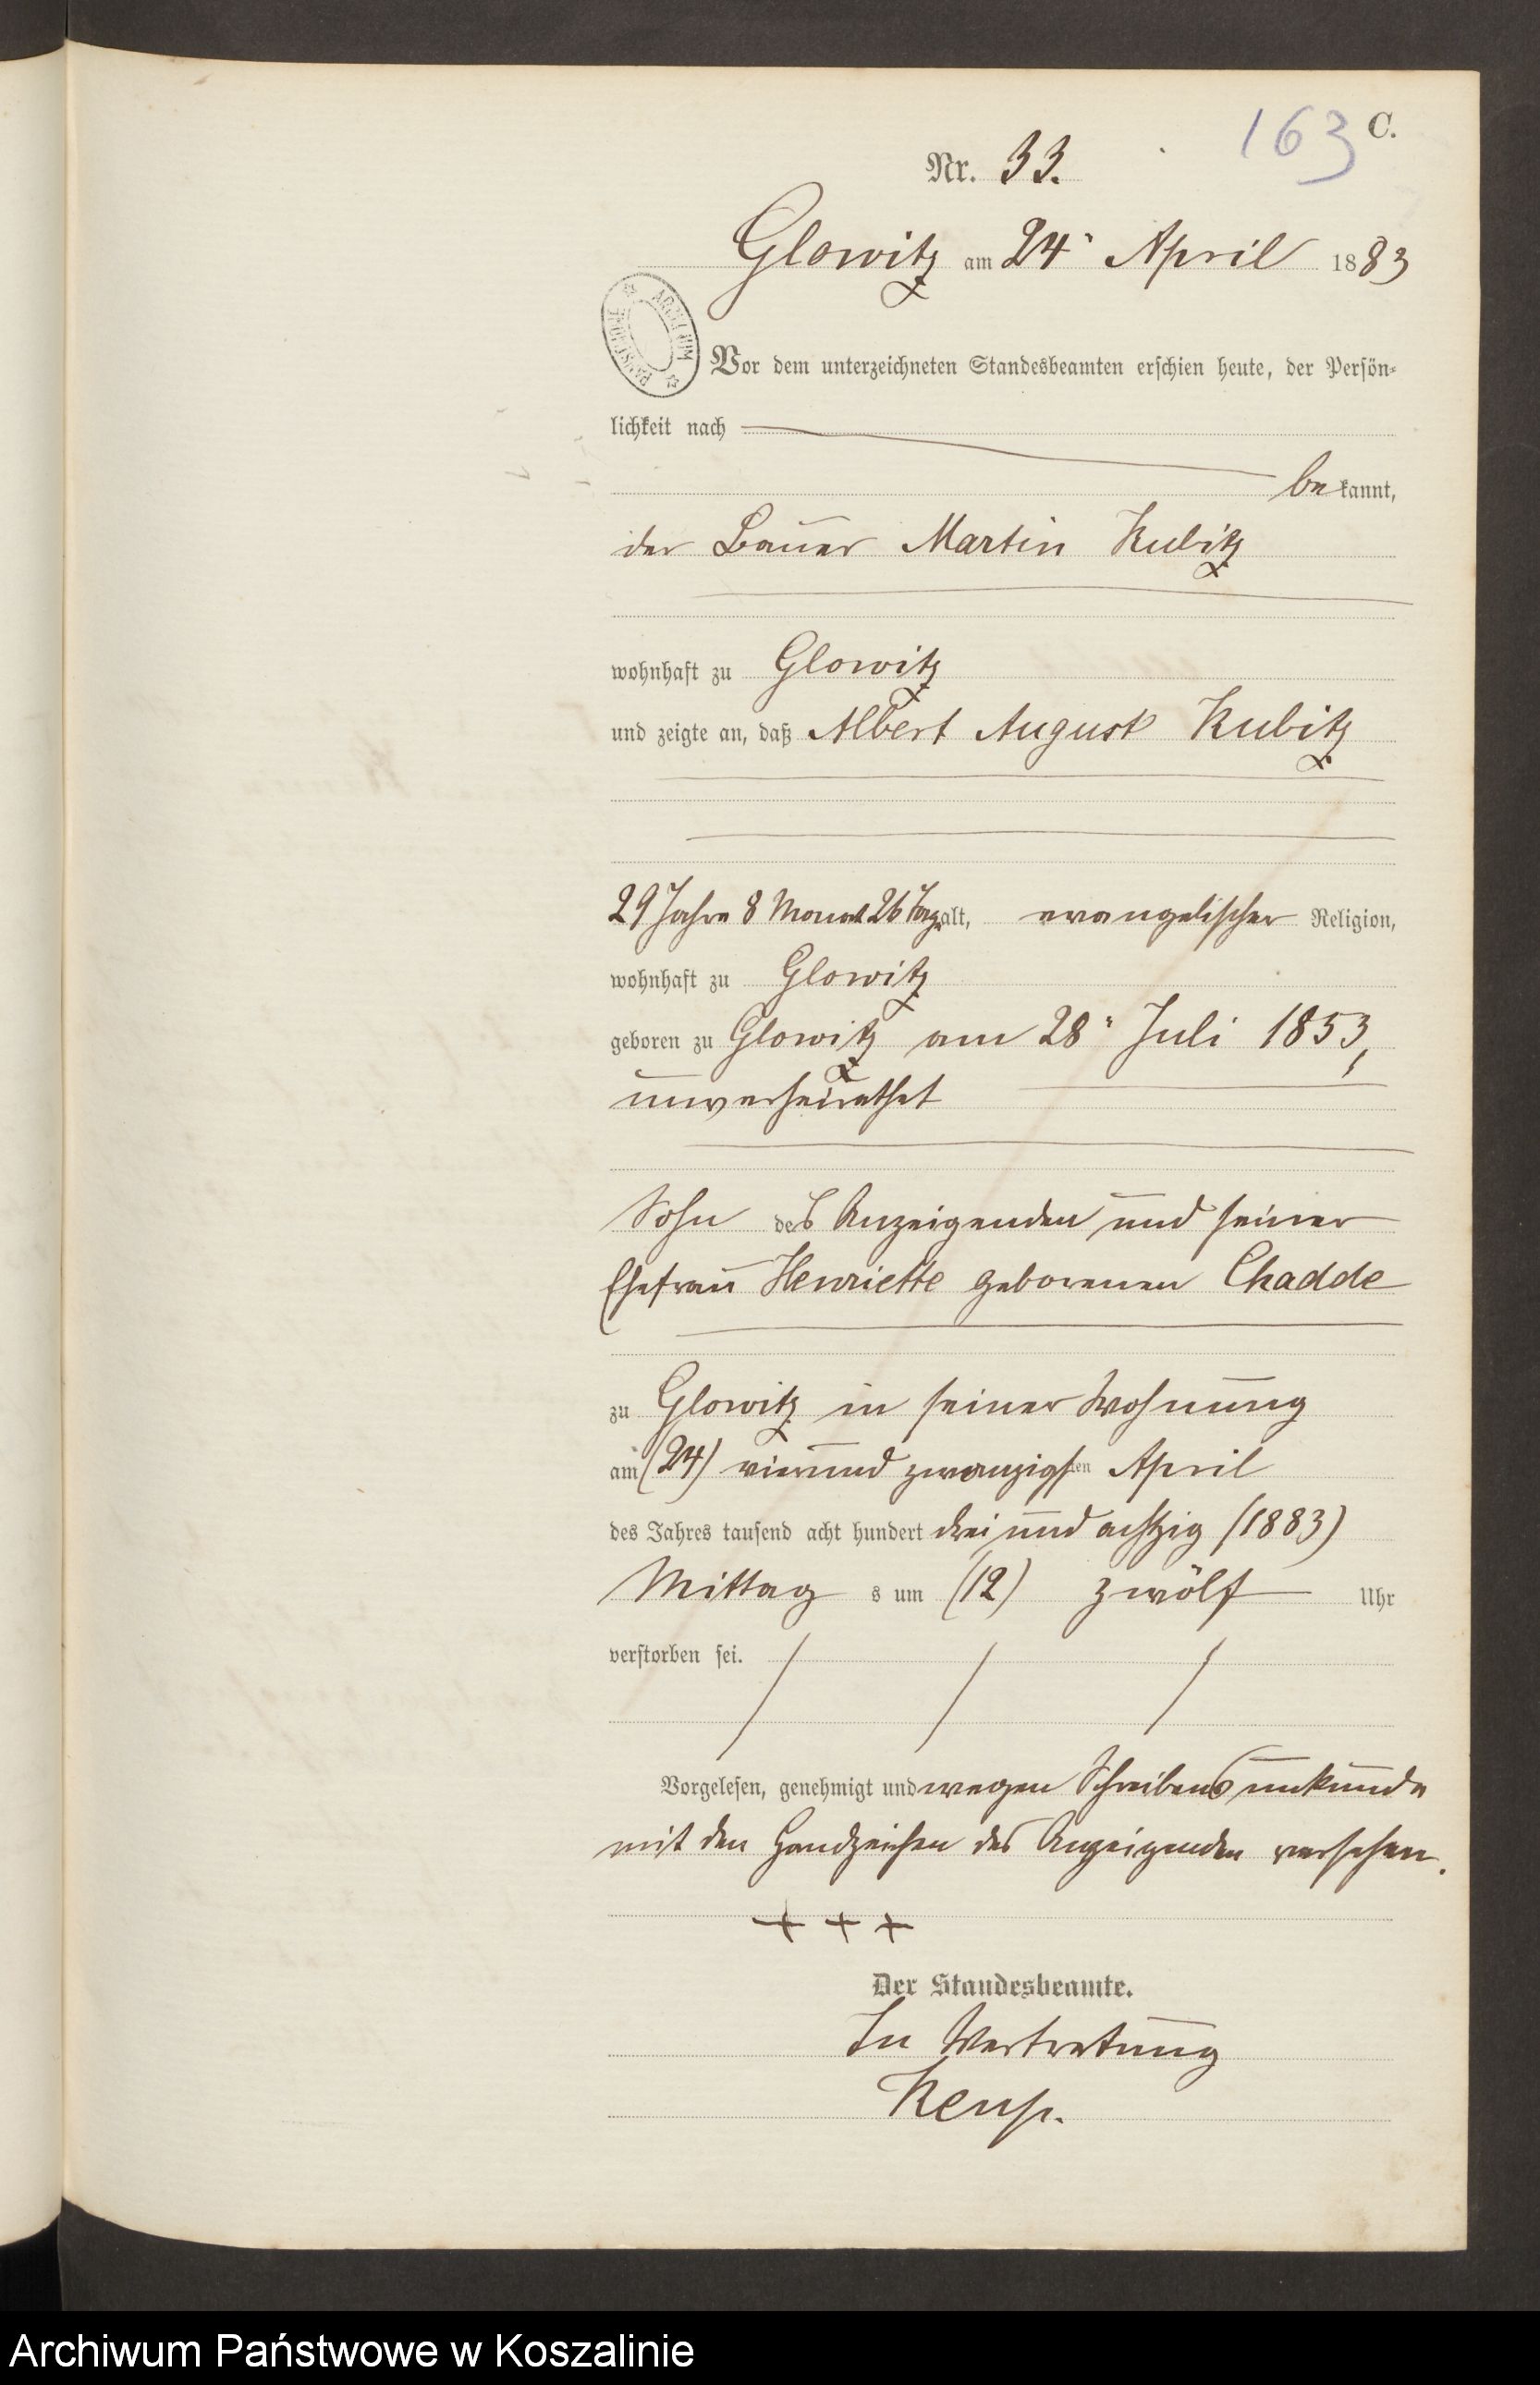 163 C.
Nr. 33.
Glowitz am 24. April 1883
ARCHIWUM PAŃSTWOWE
Vor dem unterzeichneten Standesbeamten erschien heute, der Persön-
lichkeit nach
bekannt,
der Bauer Martin Kubitz
wohnhaft zu Glowitz
und zeigte an, daß Albert August Kubitz
29 Jahre 8 Monat 26 Tage alt, evangelischer Religion,
wohnhaft zu Glowitz
geboren zu Glowitz am 28. Juli 1853,
unverheirathet
Sohn des Anzeigenden und seiner
Ehefrau Henriette geborenen Chadde
zu Glowitz in seiner Wohnung
am (24) vierundzwanzigsten April
des Jahres tausend acht hundert drei und achtzig (1883)
Mittag s um (12) zwölf Uhr
verstorben sei.
Vorgelesen, genehmigt und wegen Schreibensunkunde
mit den Handzeichen des Anzeigenden versehen.
+ + +
Der Standesbeamte.
In Vertretung
Archiwum Państwowe w Koszalinie